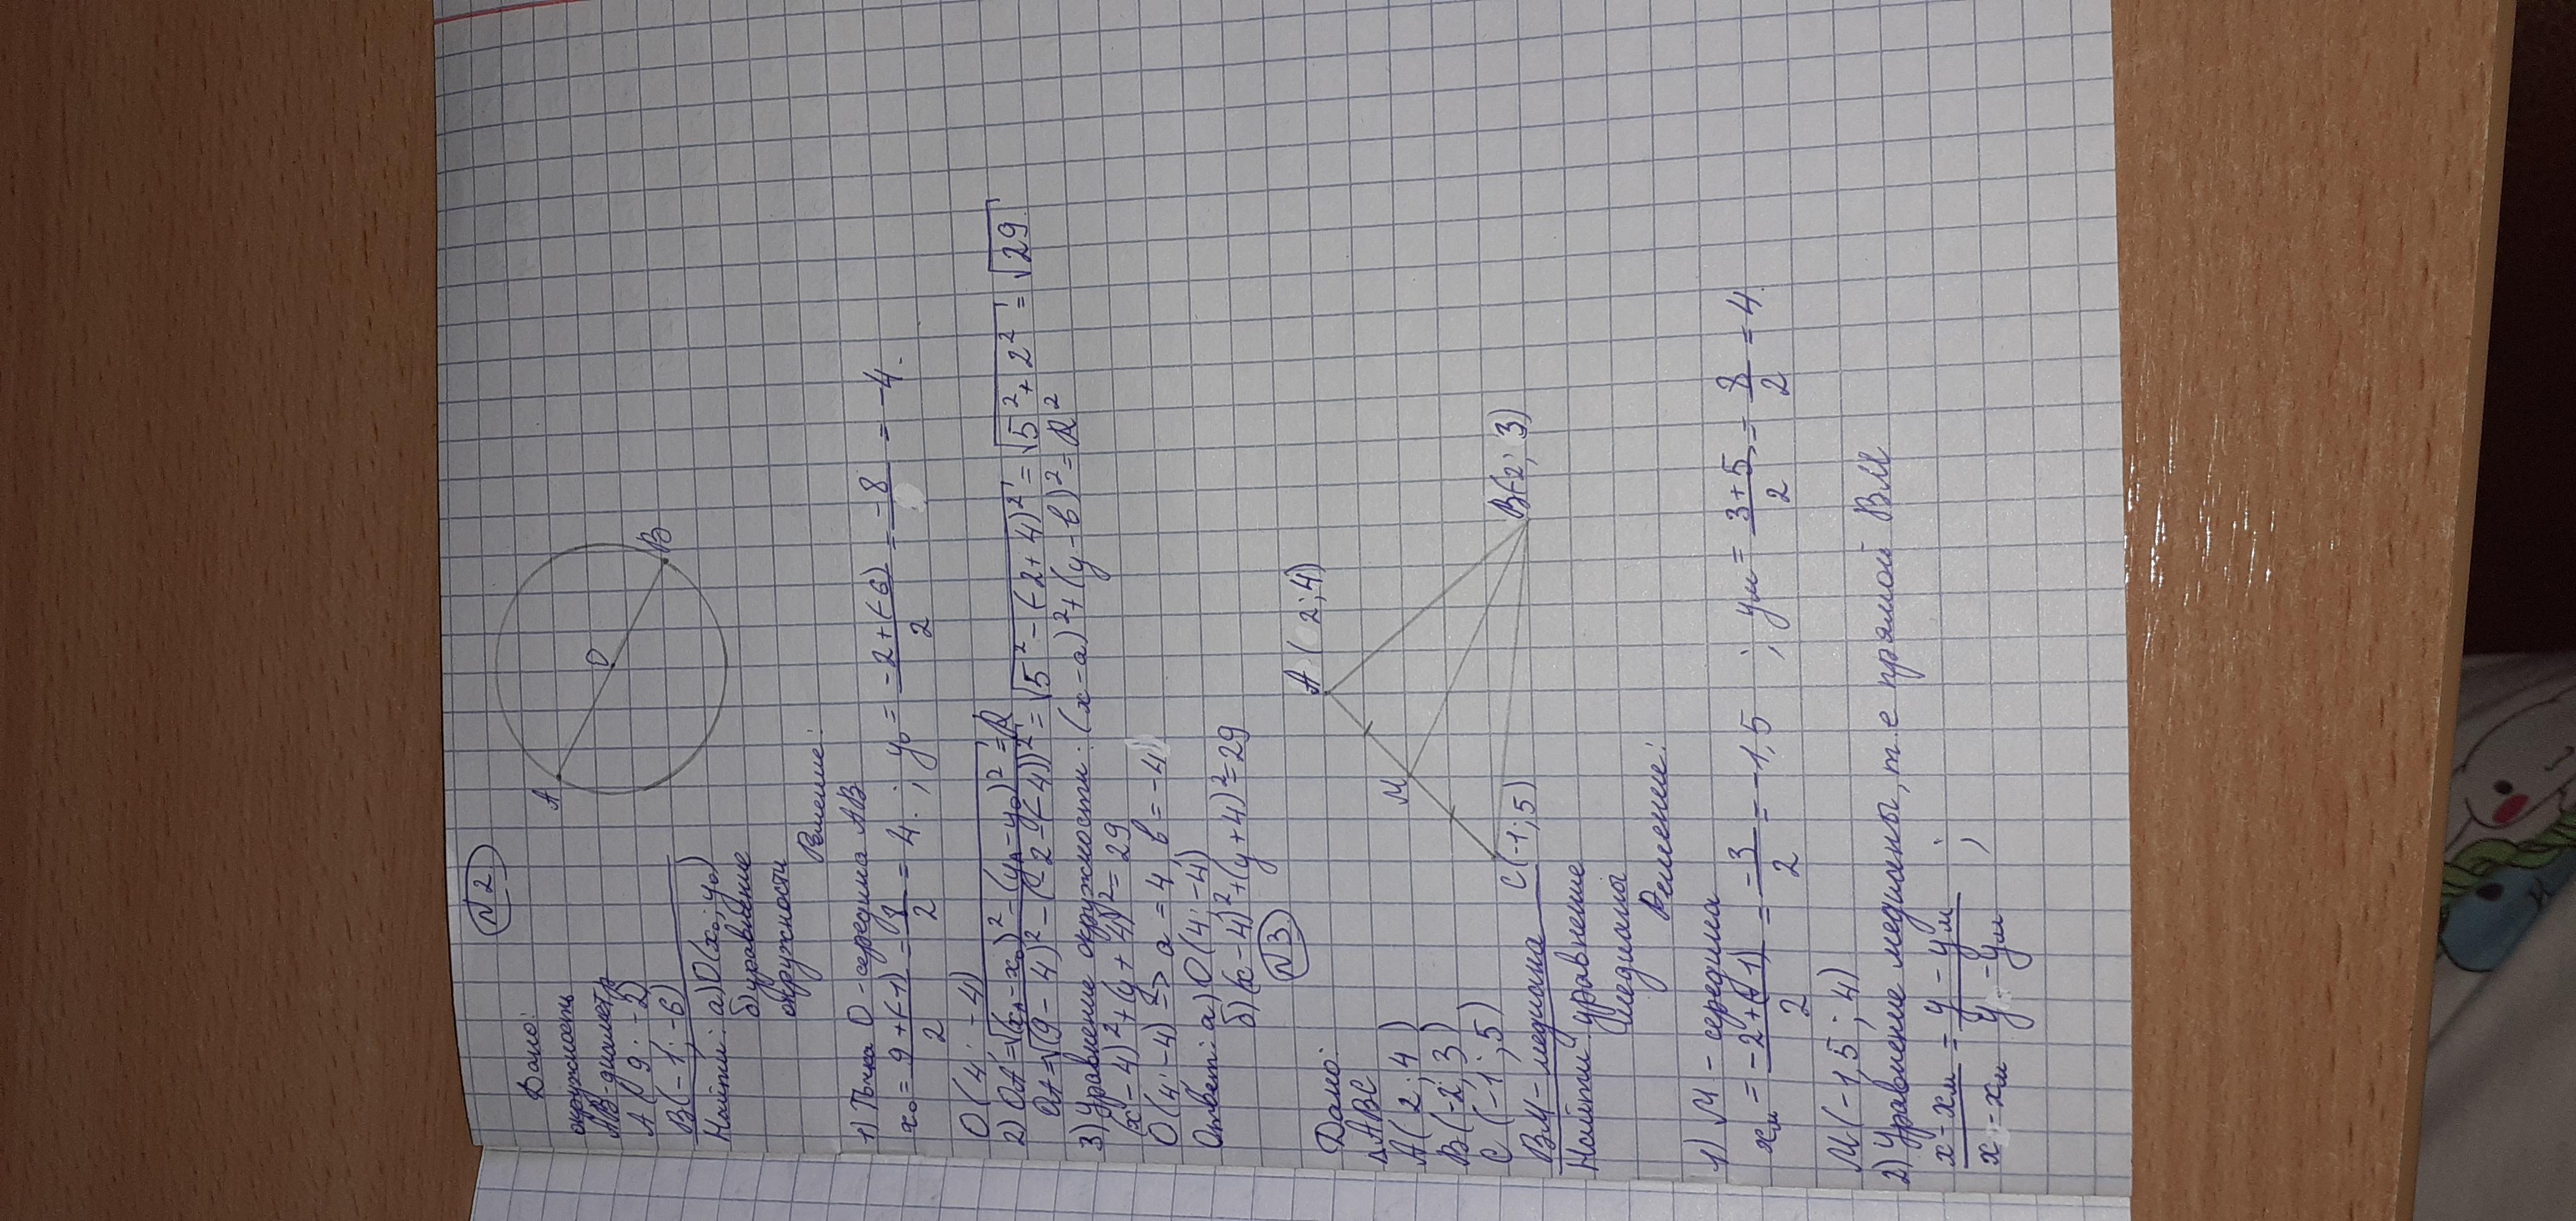 №2
Дано:
окружность
AB-диаметр
A(9; -2)
B(-1; -6)
Найти: а) O(x₀; y₀)
б) уравнение
окружности
A
O
B
Решение:
1) Точка O - середина AB
x₀ = (9+(-1))/2 = 8/2 = 4. ; y₀ = (-2+(-6))/2 = -8/2 = -4.
O(4; -4)
2) OA = √((x_A - x₀)² - (y_A - y₀)²) = R
OA = √((9-4)² - (-2-(-4))²) = √(5² - (-2+4)²) = √(5² + 2²) = √29
3) Уравнение окружности: (x-a)² + (y-b)² = R²
(x-4)² + (y+4)² = 29
O(4; -4) => a = 4, b = -4
Ответ: а) O(4; -4)
б) (x-4)² + (y+4)² = 29
№3
Дано:
△ABC
A(2; 4)
B(-2; 3)
C(-1; 5)
BM - медиана
Найти: уравнение
медианы
A(2; 4)
M
B(-2; 3)
C(-1; 5)
Решение:
1) M - середина
x_M = (-2+(-1))/2 = -3/2 = -1,5 ; y_M = (3+5)/2 = 8/2 = 4.
M(-1,5; 4)
2) Уравнение медианы, т.е прямой BM
(x - x_M)/(x - x_M) = (y - y_M)/(y - y_M) ;